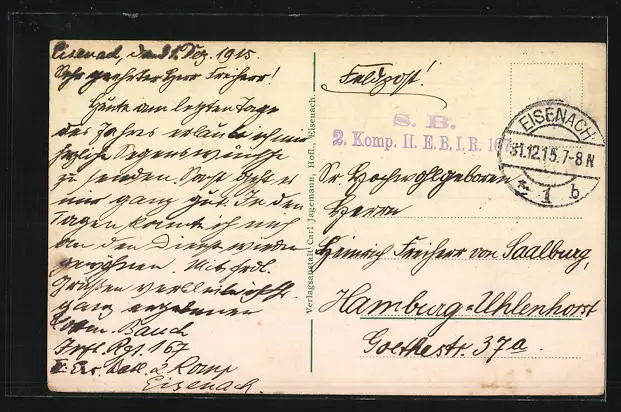 Eisenach, den 31. Dez. 1915
Sehr geehrter Herr Freiherr!
Heute am letzten Tage
des Jahres erlaube ich mir
herzliche Segenswünsche
zu senden. Sonst geht es
mir ganz gut. In den
Tagen konnte ich mich
an den Dienst wieder
gewöhnen. Mit frdl.
Grüßen verbleibe ich Ihr
ganz ergebener
Bauch
Inft. Rgt. 167
II. Ers. Batl. 2 Komp
Eisenach.
Verlagsanstalt Carl Jagemann, Hofl., Eisenach.
Feldpost!
S. B.
2. Komp. II. E. B. I. R. 167
EISENACH
31.12.15. 7-8 N
* 1 b
Sr Hochwohlgeboren
Herrn
Heinrich Freiherr von Saalburg,
Hamburg-Uhlenhorst
Goethestr. 37a.